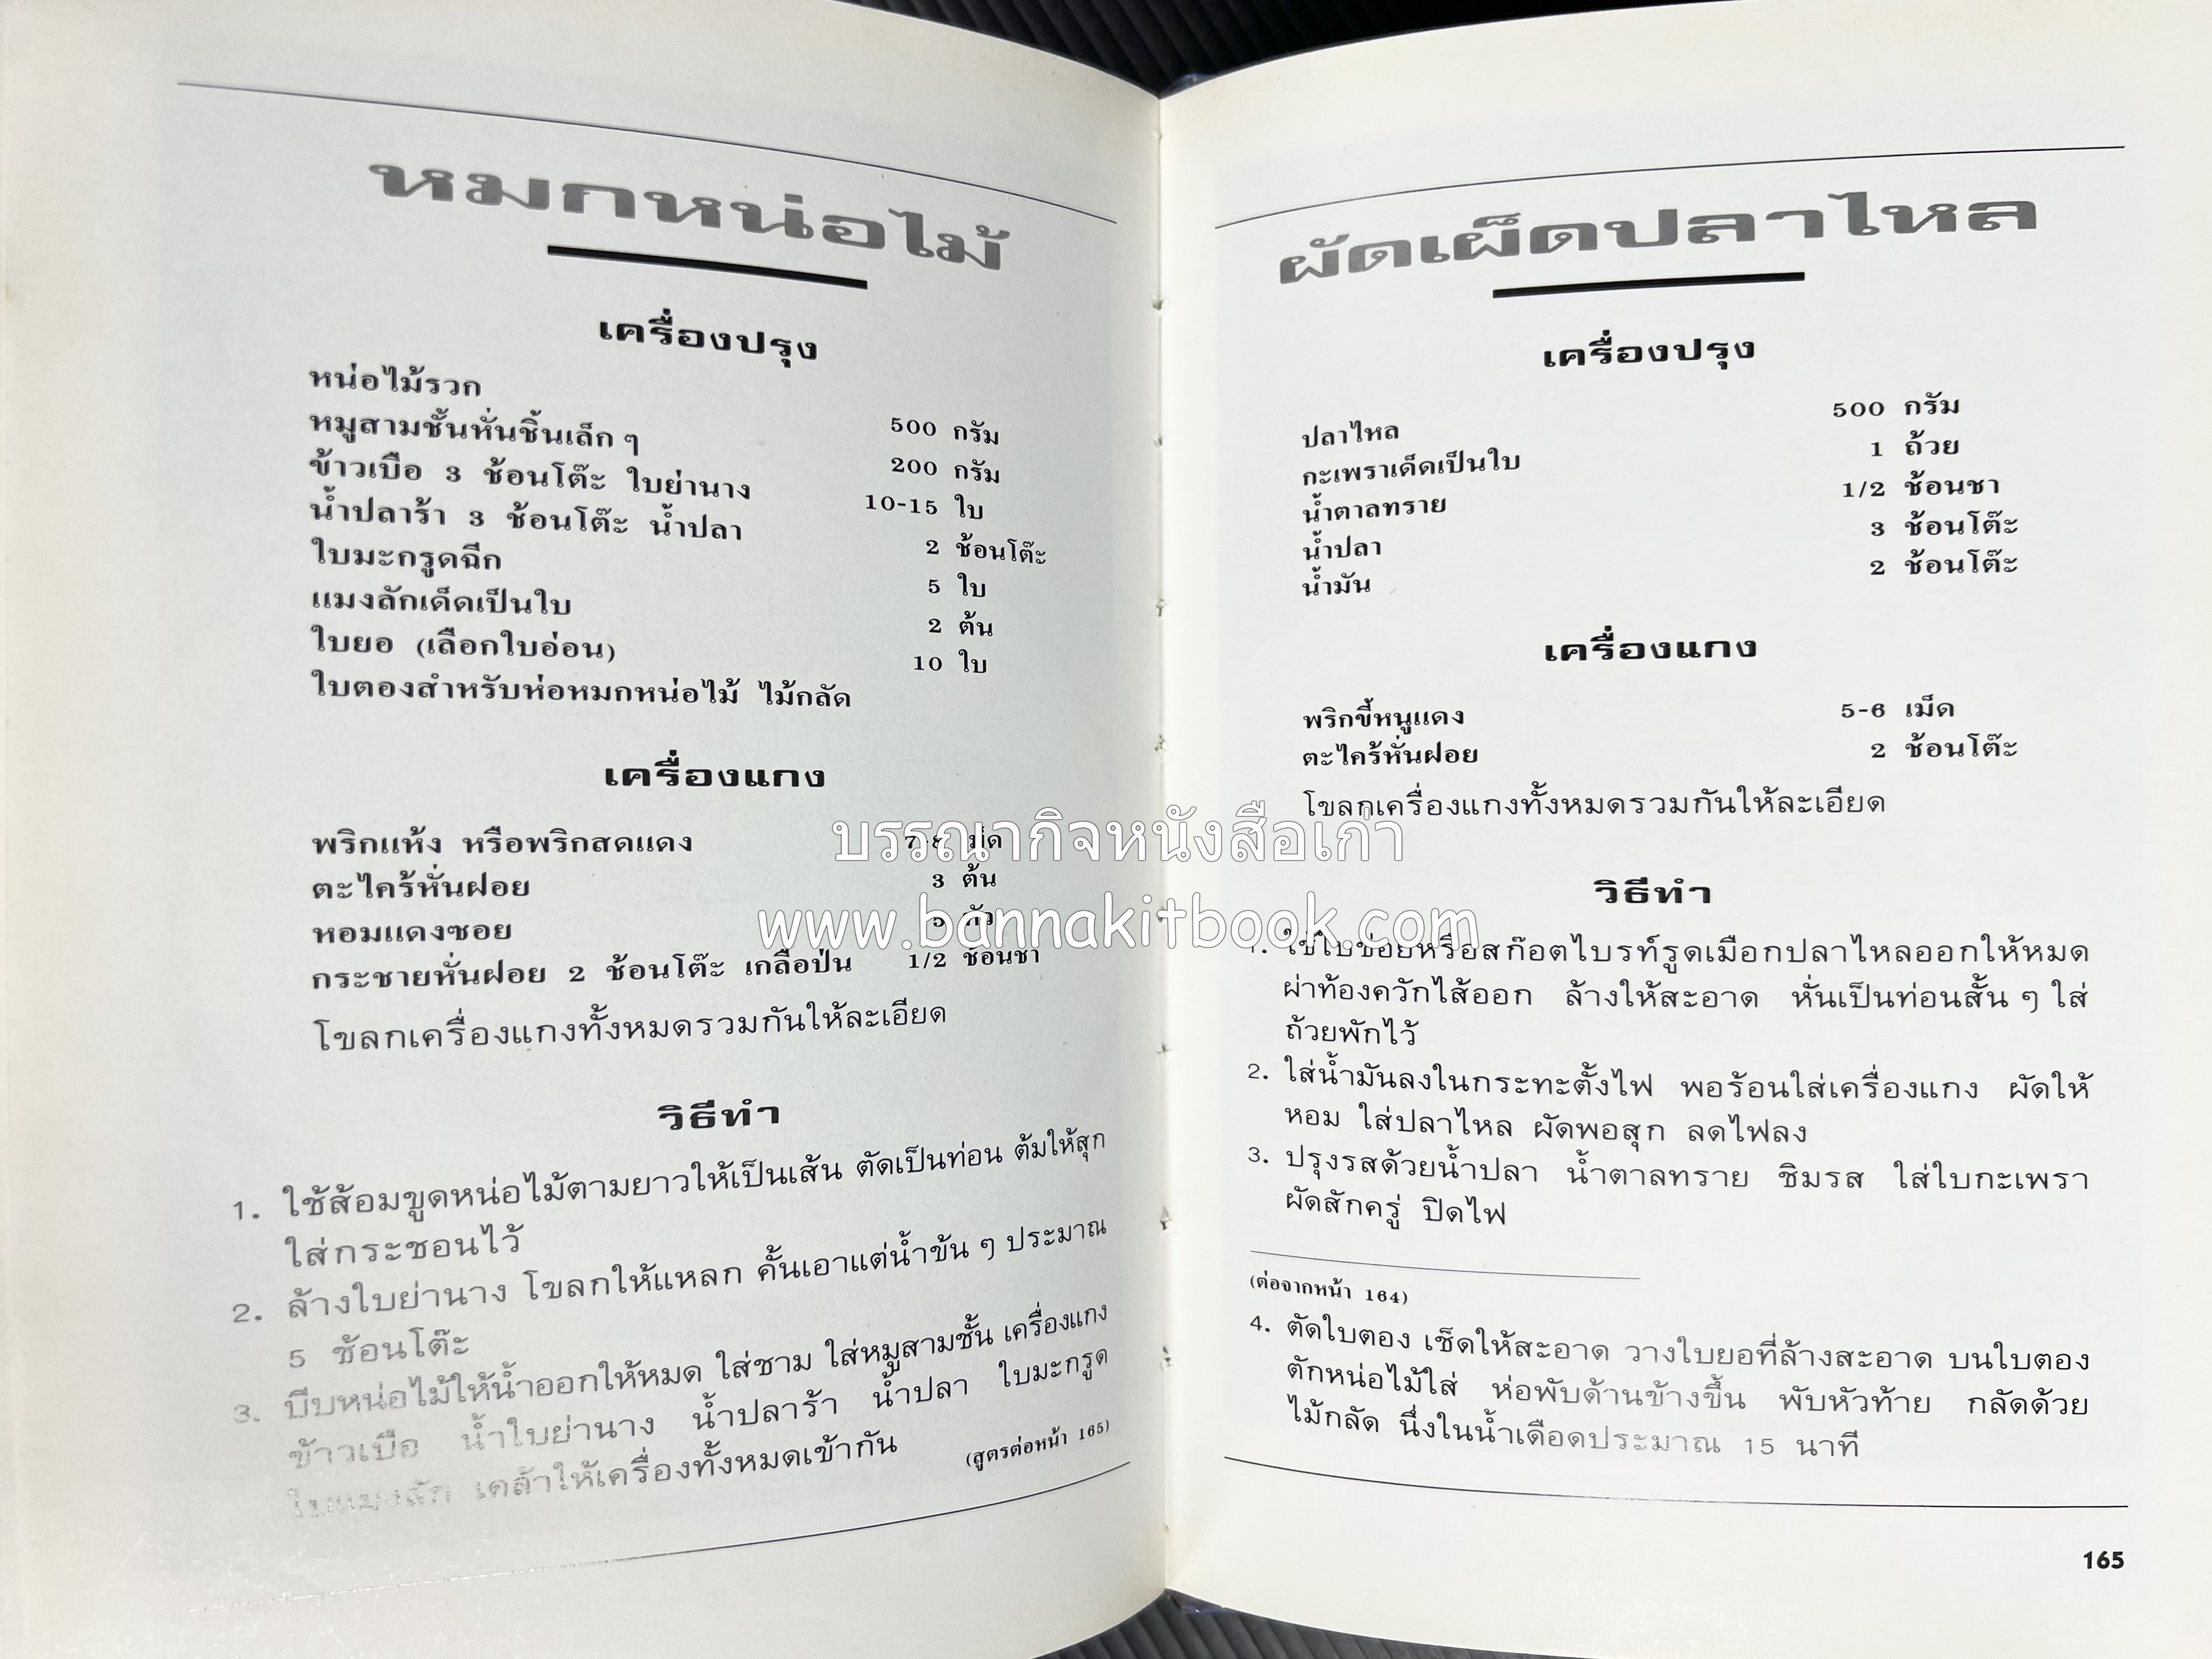 หมกหน่อไม้
เครื่องปรุง
หน่อไม้รวก 500 กรัม
หมูสามชั้นหั่นชิ้นเล็ก ๆ 200 กรัม
ข้าวเบือ 3 ช้อนโต๊ะ ใบย่านาง 10-15 ใบ
น้ำปลาร้า 3 ช้อนโต๊ะ น้ำปลา 2 ช้อนโต๊ะ
ใบมะกรูดฉีก 5 ใบ
แมงลักเด็ดเป็นใบ 2 ต้น
ใบยอ (เลือกใบอ่อน) 10 ใบ
ใบตองสำหรับห่อหมกหน่อไม้ ไม้กลัด
เครื่องแกง
พริกแห้ง หรือพริกสดแดง 7-8 เม็ด
ตะไคร้หั่นฝอย 3 ต้น
หอมแดงซอย 5 หัว
กระชายหั่นฝอย 2 ช้อนโต๊ะ เกลือป่น 1/2 ช้อนชา
โขลกเครื่องแกงทั้งหมดรวมกันให้ละเอียด
วิธีทำ
1. ใช้ส้อมขูดหน่อไม้ตามยาวให้เป็นเส้น ตัดเป็นท่อน ต้มให้สุก
ใส่กระชอนไว้
2. ล้างใบย่านาง โขลกให้แหลก คั้นเอาแต่น้ำข้น ๆ ประมาณ
5 ช้อนโต๊ะ
3. บีบหน่อไม้ให้น้ำออกให้หมด ใส่ชาม ใส่หมูสามชั้น เครื่องแกง
ข้าวเบือ น้ำใบย่านาง น้ำปลาร้า น้ำปลา ใบมะกรูด
ใบแมงลัก เคล้าให้เครื่องทั้งหมดเข้ากัน
(สูตรต่อหน้า 165)
ผัดเผ็ดปลาไหล
เครื่องปรุง
ปลาไหล 500 กรัม
กะเพราเด็ดเป็นใบ 1 ถ้วย
น้ำตาลทราย 1/2 ช้อนชา
น้ำปลา 3 ช้อนโต๊ะ
น้ำมัน 2 ช้อนโต๊ะ
เครื่องแกง
พริกขี้หนูแดง 5-6 เม็ด
ตะไคร้หั่นฝอย 2 ช้อนโต๊ะ
โขลกเครื่องแกงทั้งหมดรวมกันให้ละเอียด
วิธีทำ
1. ใช้ใบข่อยหรือสก๊อตไบรท์รูดเมือกปลาไหลออกให้หมด
ผ่าท้องควักไส้ออก ล้างให้สะอาด หั่นเป็นท่อนสั้น ๆ ใส่
ถ้วยพักไว้
2. ใส่น้ำมันลงในกระทะตั้งไฟ พอร้อนใส่เครื่องแกง ผัดให้
หอม ใส่ปลาไหล ผัดพอสุก ลดไฟลง
3. ปรุงรสด้วยน้ำปลา น้ำตาลทราย ชิมรส ใส่ใบกะเพรา
ผัดสักครู่ ปิดไฟ
(ต่อจากหน้า 164)
4. ตัดใบตอง เช็ดให้สะอาด วางใบยอที่ล้างสะอาด บนใบตอง
ตักหน่อไม้ใส่ ห่อพับด้านข้างขึ้น พับหัวท้าย กลัดด้วย
ไม้กลัด นึ่งในน้ำเดือดประมาณ 15 นาที
165
บรรณากิจหนังสือเก่า
www.bannakitbook.com